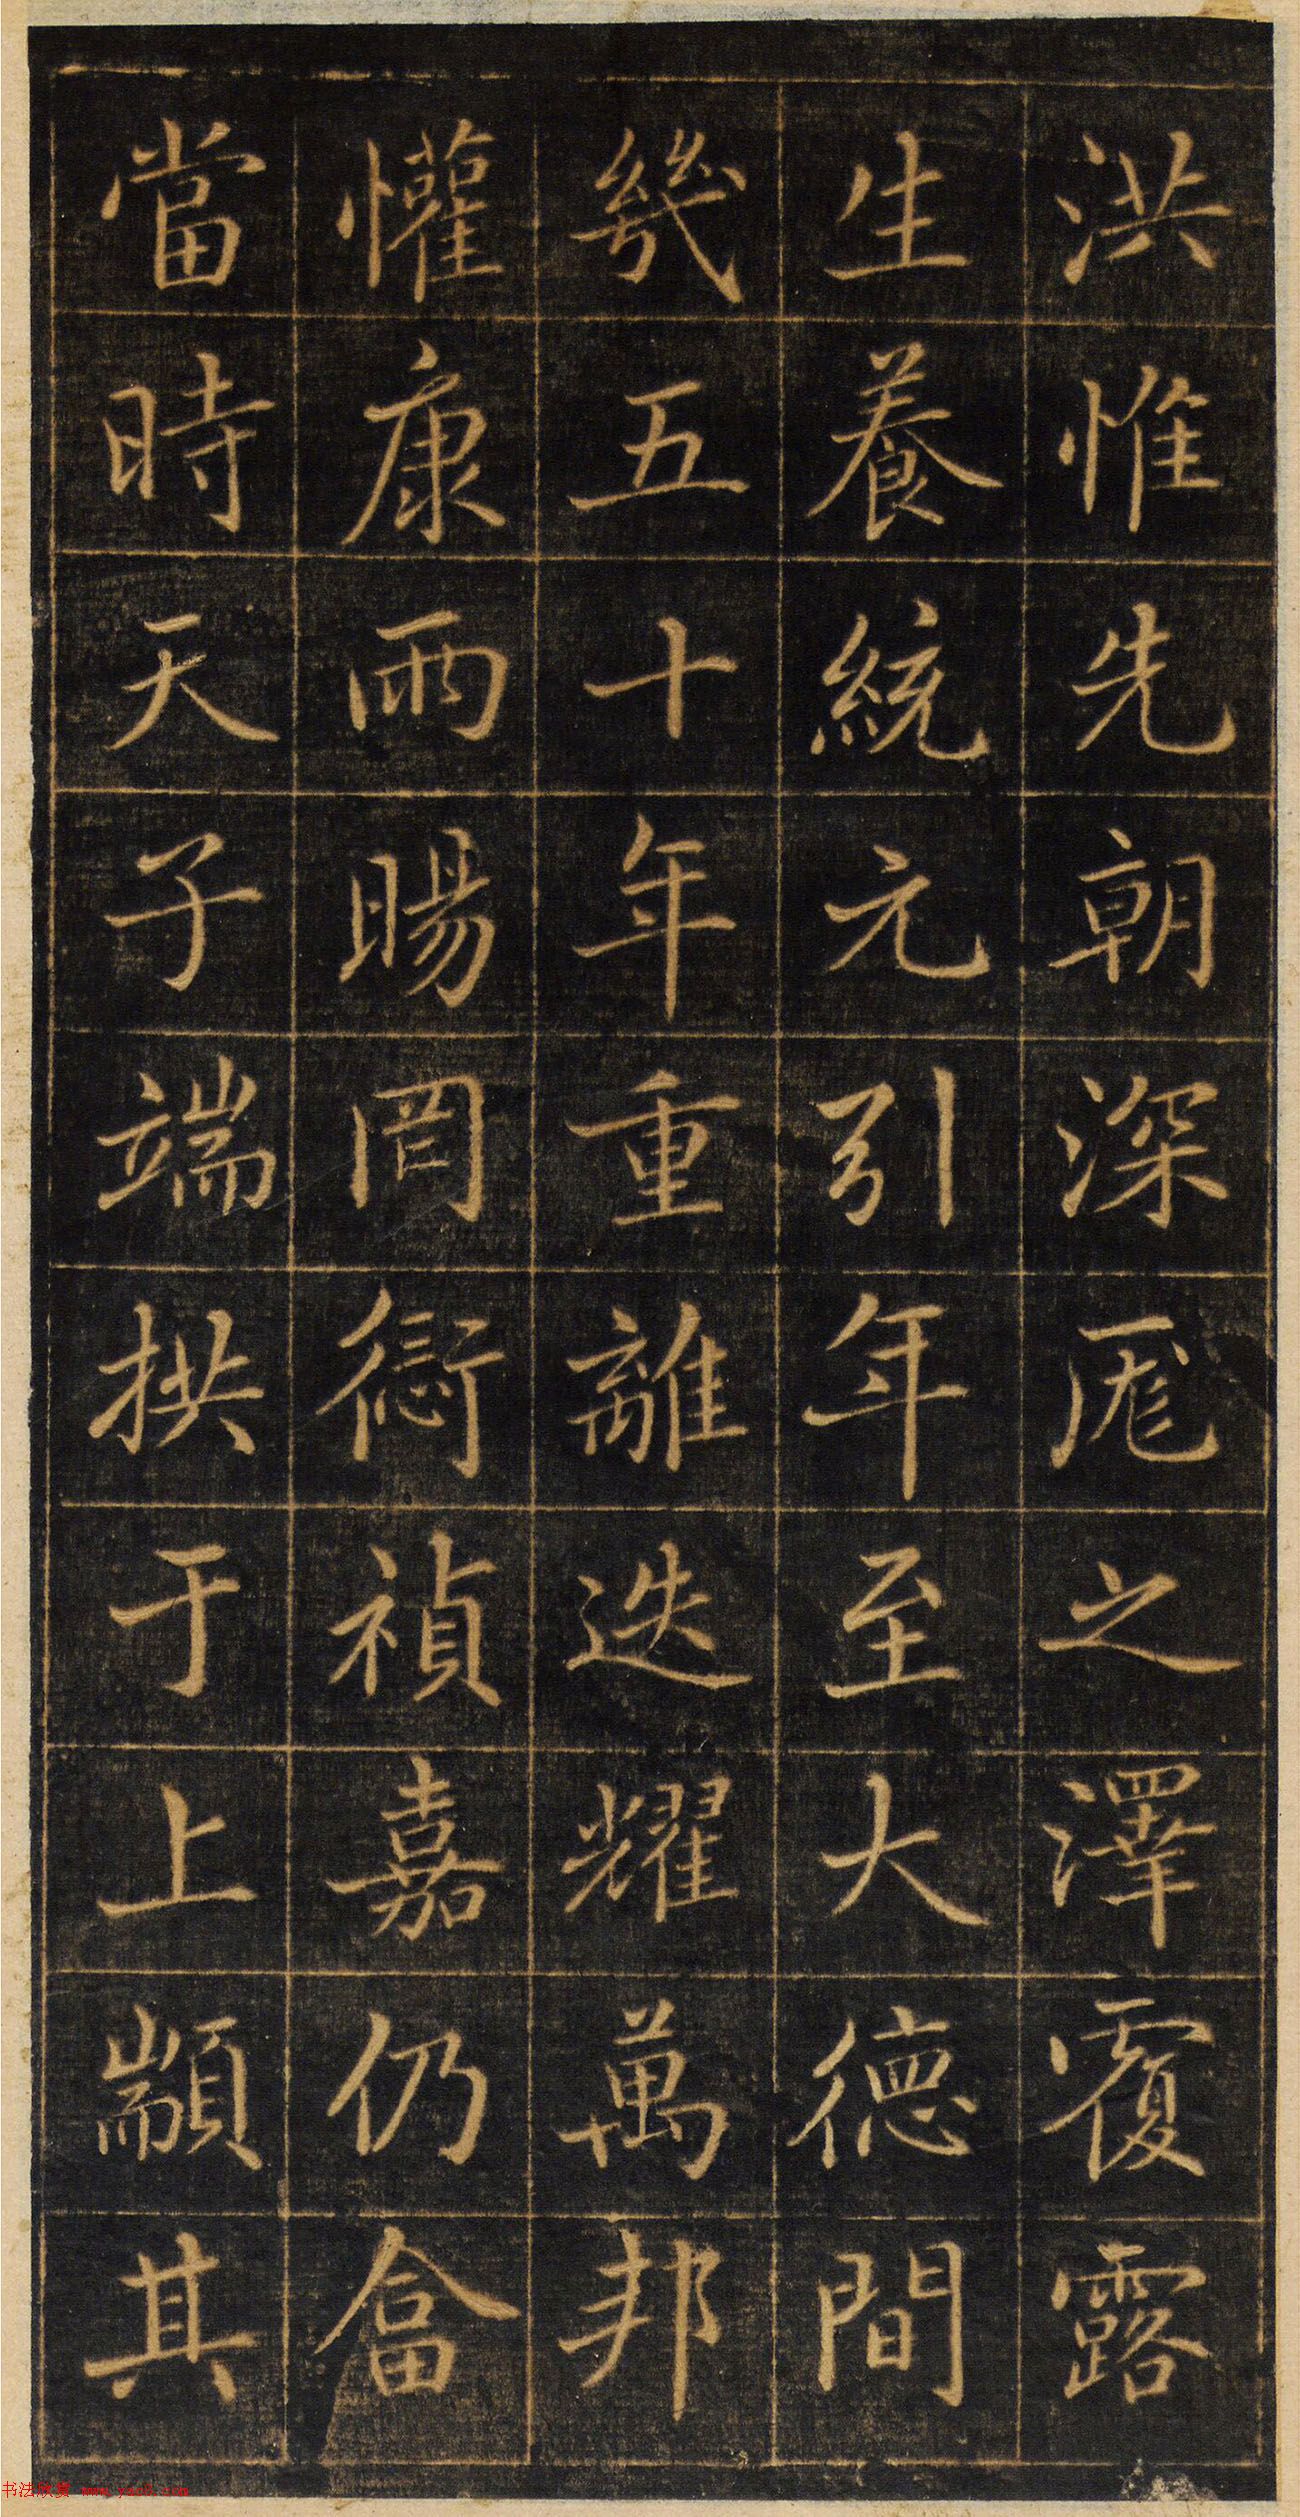 洪惟先朝深厖之澤覆露
生養統元引年至大德間
幾五十年重離迭耀萬邦
懽康雨暘罔愆禎嘉仍畣
當時天子端拱于上顓其
书法欣赏 www.yac8.com